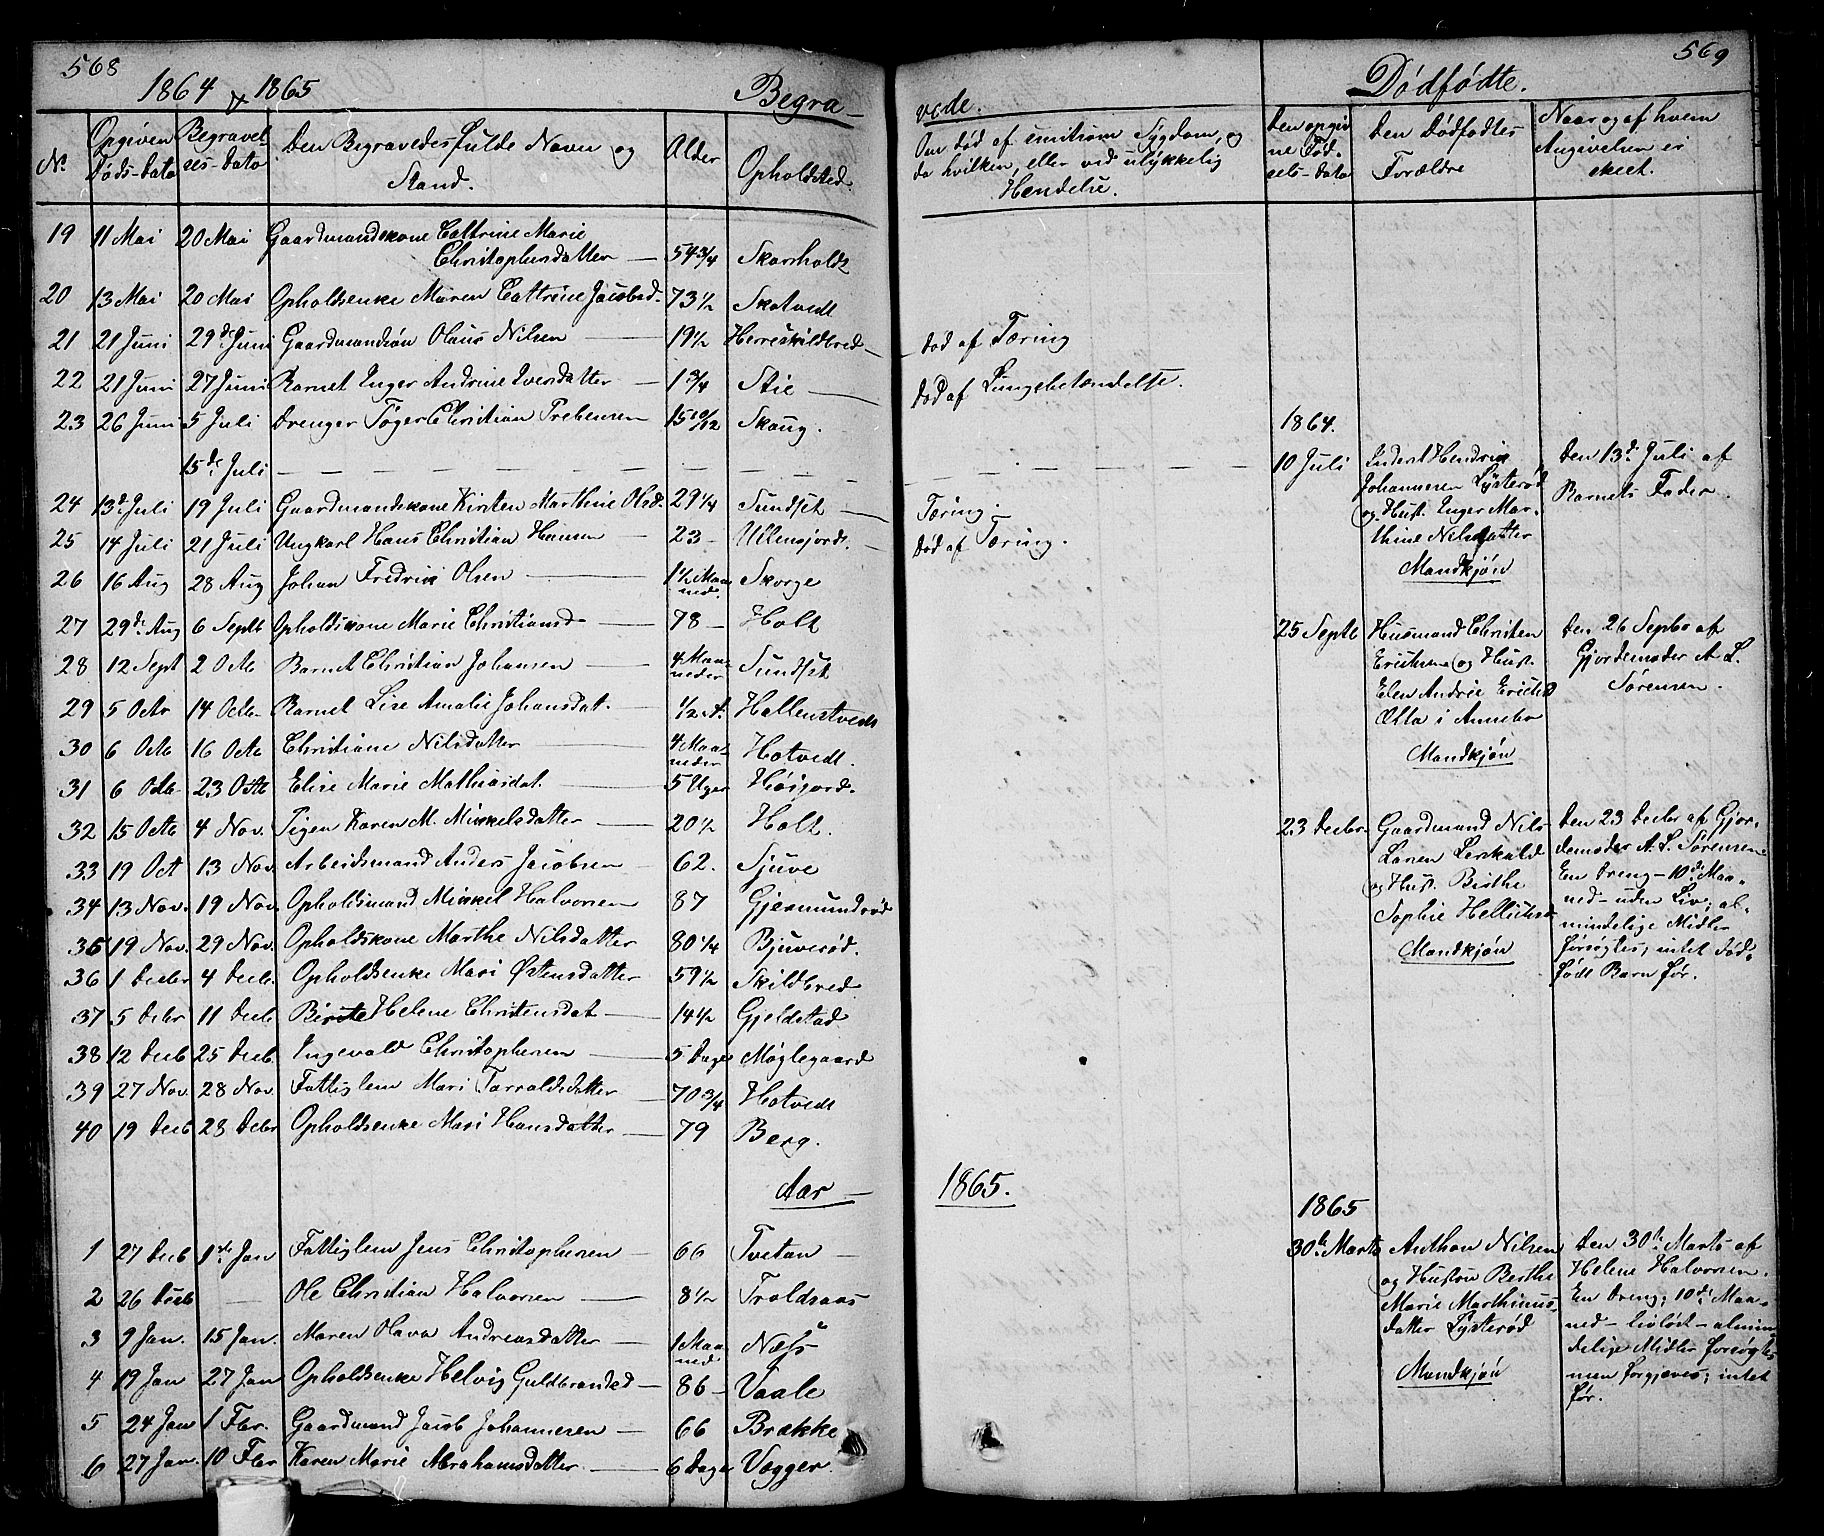 568
1864 & 1865
Begra-
No.
Opgiven Døds-Dato
Begravelses-Dato
Den Begravedes fulde Navn og Stand.
Alder
Opholdsted.
19 11 Mai 20 Mai Gaardmandskone Cattrine Marie
Christophersdatter — 54 3/4 Skarsholt
20 13 Mai 20 Mai Opholdsenke Maren Cattrine Jacobsd. 73 1/2 Skotvedt
21 21 Juni 29de Juni Gaardmandsøn Olaus Nilsen — 19 1/2 Herreskildbred —
22 21 Juni 27 Juni Barnet Inger Andrine Iversdatter — 1 3/4 Stie —
23 26 Juni 5 Juli Drenger Tøger Christian Prebensen 15 10/12 Skoug.
15de Juli — — — — — — — —
24 13d Juli 19 Juli Gaardmandskone Kirsten Marthine Olsd. 29 1/4 Sundset —
25 14 Juli 21 Juli Ungkarl Hans Christian Hansen — 23 —
26 16 Aug 28 Aug Johan Fredrik Olsen — 1 1/2 Maaneder. Skorge
27 29de Aug 6 Septb Opholdskone Marie Christiansd — 78 — Holt
28 12 Sept 2 Octb Barnet Christian Johansen — 4 Maaneder Sundset
29 5 Octr 14 Octb. Barnet Lise Amalie Johansdat. — 1/2 A. Hallenstvedt
30 6 Octb 16 Octb Christiane Nilsdatter — 4 Maaneder Hotvedt.
31 6 Octb. 23 Octb Elise Marie Mathiasdat. — 5 Uger Høijord.
32 15 Octb 4 Nov. Pigen Karen M. Mikkelsdatter — 20 1/2 Holt.
33 19 Oct 13 Nov. Arbeidsmand Anders Jacobsen — 62. Sjuve
34 13 Nov. 19 Nov. Opholdsmand Mikkel Halvorsen — 87 Gjermundrød
35 19 Nov. 29 Nov. Opholdskone Marthe Nilsdatter 80 1/4 Bjuverød.
36 1 Decbr 4 Decb. Opholdsenke Mari Østensdatter 59 1/2 Skildbred
37 5 Debr 11 Decb Birthe Helene Christensdat — 14 1/2 Gjeldstad
38 12 Decb 25 Decb. Ingevald Christophersen — 5 Dage Møglegaard
39 27 Nov. 28 Nov. Fattiglem Mari Tarraldsdatter — 70 3/4 Hotvedt
40 19 Decb 28 Debr Opholdsenke Mari Hansdatter — 79 Berg.
Aar —
1 27 Decb 1ste Jan Fattiglem Jens Christophersen — 66 Tvetan —
2 26 Decb — Ole Christian Halvorsen — 8 1/2 Troldsaas
3 9 Jan. 15 Jan. Maren Olava Andreasdatter — 1 Maaned Næss
4 19 Jan 27 Jan Opholdsenke Helvig Guldbrandsd — 86 — Vaale
5 24 Jan 1 Fbr. Gaardmand Jacob Johannesen — 66 Brække
6 27 Jan. 10 Fbr Karen Marie Abrahamsdatter. — 6 Dage Vegger.
569
vede.
Dødfødte.
Om død af smitsom Sygdom, og
da hvilken, eller ved ulykkelig
Hendelse.
Den opgivne Fødsels-Dato
Den Dødfødtes Forældre
Naar og af hvem Angivelsen er skeet.
Død af Tæring
Død af Lungebetændelse.
Tæring —
Død af Tæring.
1864.
10 Juli
Inderst Hendrik
Johannesen Lysterød
og Hust. Inger Mar-
thine Nilsdatter
Mandkjøn
Den 13d Juli af
Barnets Fader
25 Septb
Husmand Christen
Ericksen og Hust.
Elen Andrie Ericksd
Ælta i Annebo
Mandkjøn
Den 26 Septbr af
Gjordemoder A. L.
Sørensen.
23 Decbr.
Gaardmand Nils
Larsen Leskald
og Hust. Birthe
Sophie Helliksd
Mandkjøn
Den 23 Decbr af Gjor-
demoder A. L. Sørensen
En Dreng — 10de Maa-
ned — uden Liv; al-
mindelige Midler
forsøgtes; intet Død-
født Barn før.
1865.
1865
30te Marts
Anthon Nilsen
og Hustru Berthe
Marie Marthinus-
datter Lysterød
Mandkjøn
Den 30te Marts af
Helene Halvorsen.
En Dreng; 10de Maa-
ned — livløst — almin-
delige Midler forsøgtes
men forgjæves; intet
før.